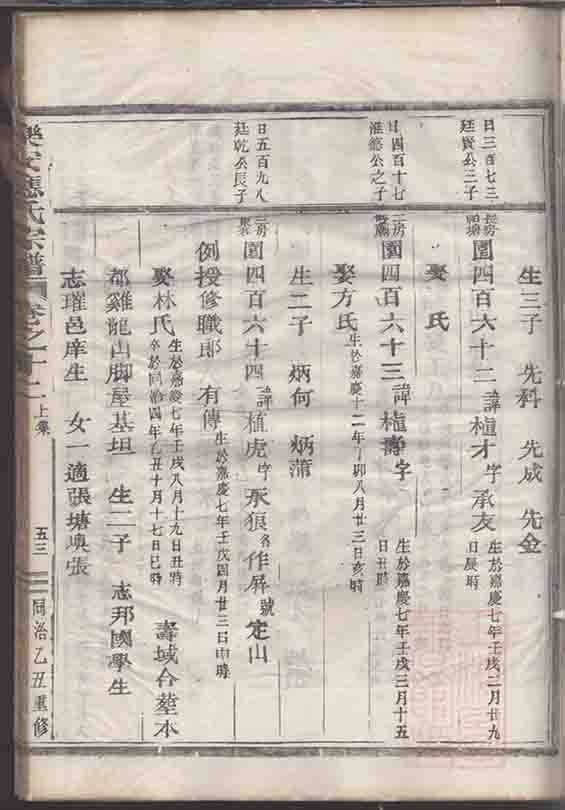 生三子 先科 先成 先金
日三百七三
廷賢公三子
長房
園四百六十二 諱植才字承友 生於嘉慶七年壬戌二月廿九
日辰時
娶 氏
日四百十七
公之子
二房
園四百六十三 諱植壽字 生於嘉慶七年壬戌三月十五
日丑時
娶方氏 生於嘉慶十二年丁卯八月廿三日亥時
生二子 炳何 炳蒲
日五百九八
廷乾公長子
二房
園四百六十四 諱植虎字承痕名作屏號定山
例授修職郎 有傳 生於嘉慶七年壬戌四月廿三日申時
娶林氏 生於嘉慶七年壬戌八月十九日丑時
卒於同治四年乙丑十月十七日巳時 壽域合塟本
都雞龍山脚屋基坦 生二子 志邦國學生
志瓘邑庠生 女一適張塘㘭張
樂安應氏宗譜 卷之十二 上集 五三 同治乙丑重修